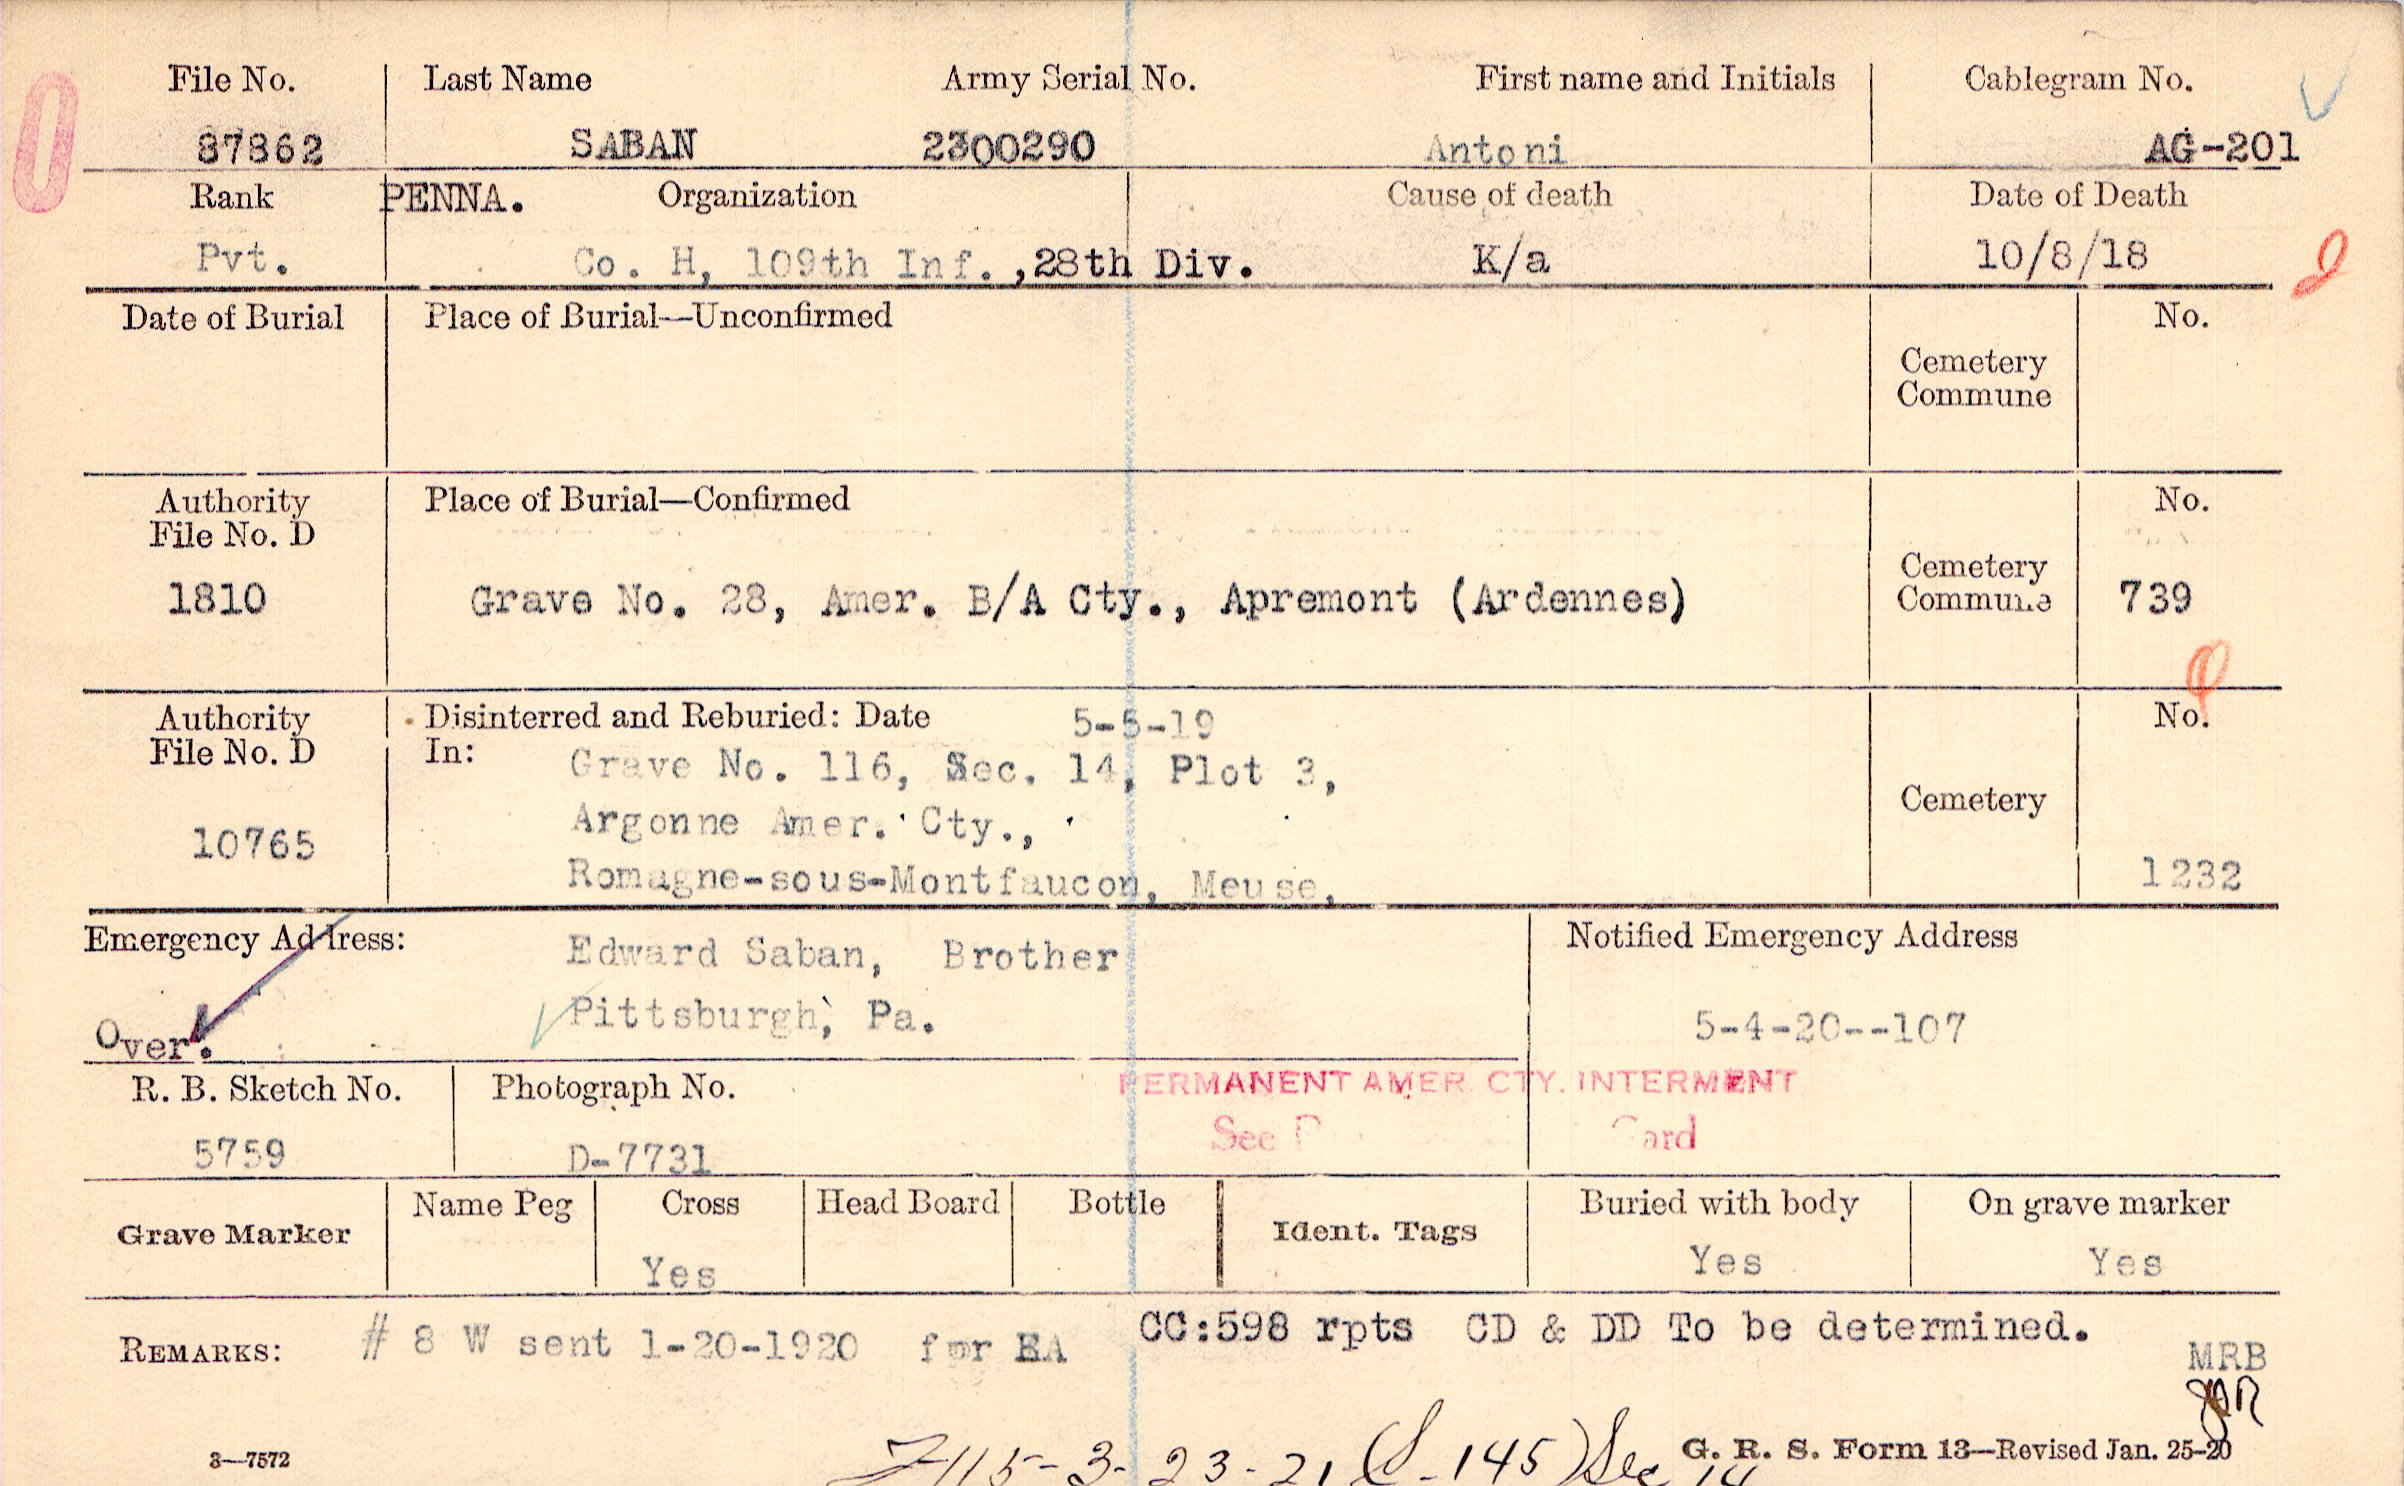 File No. Last Name Army Serial No. First name and Initials Cablegram No.
87862 SABAN 2300290 Antoni AG-201
Rank PENNA. Organization Cause of death Date of Death
Pvt. Co. H, 109th Inf.,28th Div. K/a 10/8/18
Date of Burial Place of Burial—Unconfirmed No.
Cemetery
Commune
Authority Place of Burial—Confirmed No.
File No. D
Cemetery
1810 Grave No. 28, Amer. B/A Cty., Apremont (Ardennes) Commune 739
Authority Disinterred and Reburied: Date 5-5-19 No.
File No. D In: Grave No. 116, Sec. 14, Plot 3,
Argonne Amer. Cty., Cemetery
10765 Romagne-sous-Montfaucon, Meuse, 1232
Emergency Address: Edward Saban, Brother Notified Emergency Address
Over. Pittsburgh, Pa. 5-4-20--107
R. B. Sketch No. Photograph No. PERMANENT AMER. CTY. INTERMENT
See
5759 D-7731
Grave Marker Name Peg Cross Head Board Bottle Ident. Tags Buried with body On grave marker
Yes Yes Yes
REMARKS: # 8 W sent 1-20-1920 for EA CC:598 rpts CD & DD To be determined.
MRB
3—7572 115-3-23-21 (S-145) Sec 14 G. R. S. Form 13—Revised Jan. 25-20